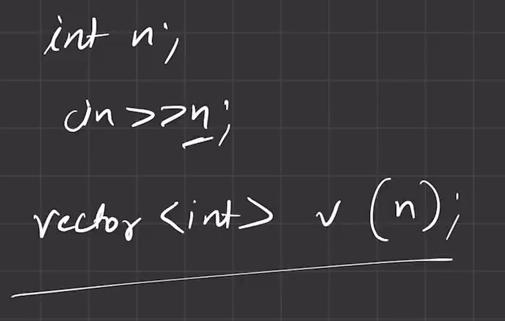 int n;
cin>>n;
vector <int> v (n);